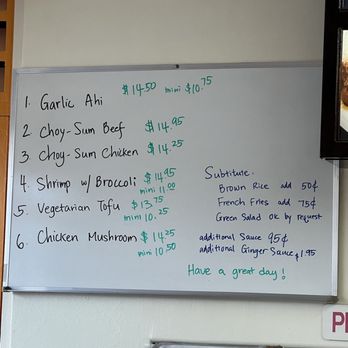 1. Garlic Ahi $14.50 mini $10.75
2 Choy-Sum Beef $14.95
3. Choy-Sum Chicken $14.25
4. Shrimp w/ Broccoli $14.95
mini 11.00
5. Vegetarian Tofu $13.75
mini 10.25
6. Chicken Mushroom $14.25
mini 10.50
Subtitute.
Brown Rice add 50¢
French Fries add 75¢
Green Salad ok by request
additional Sauce 95¢
additional Ginger Sauce $1.95
Have a great day!